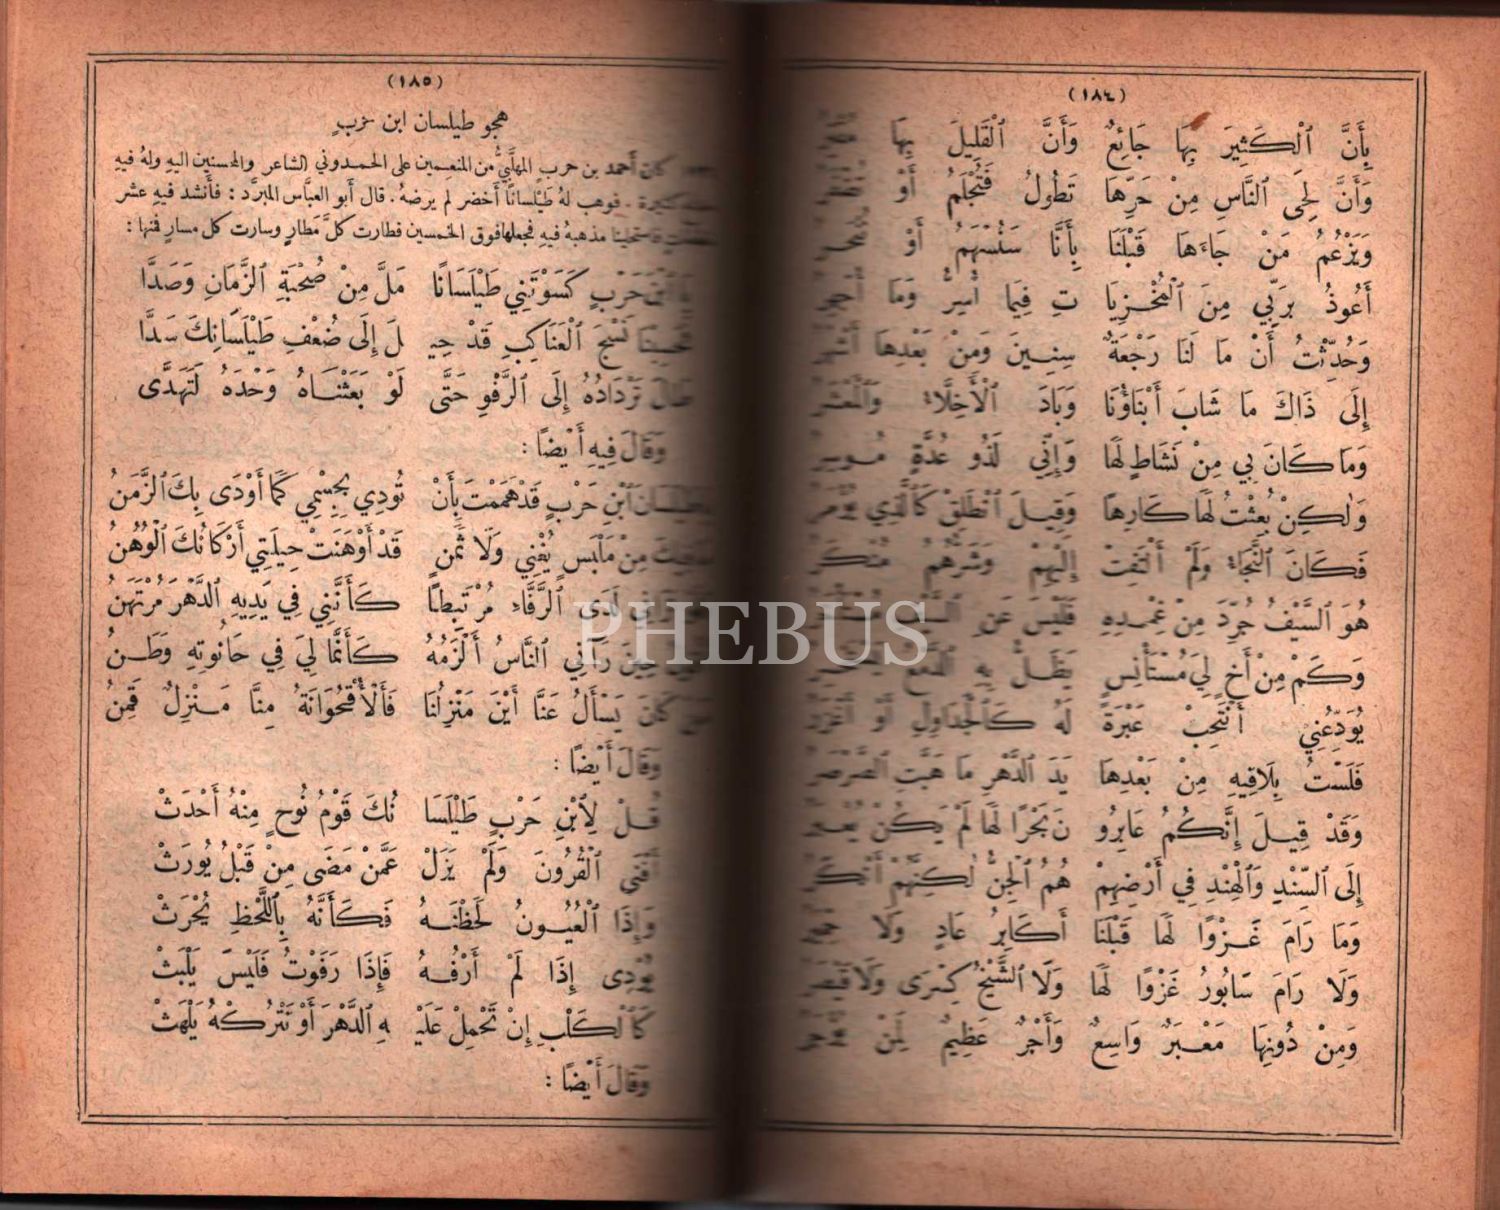 (١٨٤)
بِأَنَّ ٱلْكَثِيرَ بِهَا جَائِعٌ وَأَنَّ ٱلْقَلِيلَ بِهَا
وَأَنَّ لِحَى ٱلنَّاسِ مِنْ حَرِّهَا تَطُولُ فَتُجْلَمُ أَوْ
وَيَزْعُمُ مَنْ جَاءَهَا قَبْلَنَا بِأَنَّا سَنُسْهَمُ أَوْ
أَعُوذُ بِرَبِّي مِنَ ٱلْمُخْزِيَا تِ فِيمَا أُسِرُّ وَمَا أَجْهَرُ
وَحُدِّثْتُ أَنْ مَا لَنَا رَجْعَةٌ سِنِينَ وَمِنْ بَعْدِهَا أَشْهُرُ
إِلَى ذَاكَ مَا شَابَ أَبْنَاؤُنَا وَبَادَ ٱلْأَخِلَّاءُ وَٱلْمَعْشَرُ
وَمَا كَانَ بِي مِنْ نَشَاطٍ لَهَا وَإِنِّي لَذُو عُدَّةٍ مُوسِرُ
وَلٰكِنْ بُعِثْتُ لَهَا كَارِهًا وَقِيلَ ٱنْطَلِقْ كَٱلَّذِي يُؤْمَرُ
فَكَانَ ٱلنَّجَاءُ وَلَمْ أَلْتَفِتْ إِلَيْهِمْ وَشَرُّهُمُ مُنْكَرُ
هُوَ ٱلسَّيْفُ جُرِّدَ مِنْ غِمْدِهِ فَلَيْسَ عَنِ ٱلسَّيْفِ
وَكَمْ مِنْ أَخٍ لِيَ مُسْتَأْنِسٍ يَظَلُّ بِهِ ٱلدَّمْعُ
يُوَدِّعُنِي أَنْتَحَبَتْ عَبْرَةً لَهُ كَٱلْجَدَاوِلِ أَوْ أَغْزَرُ
فَلَسْتُ بِلَاقِيهِ مِنْ بَعْدِهَا يَدَ ٱلدَّهْرِ مَا هَبَّتِ ٱلصَّرْصَرُ
وَقَدْ قِيلَ إِنَّكُمُ عَابِرُو نَ بَحْرًا لَهَا لَمْ يَكُنْ يُعْبَرُ
إِلَى ٱلسِّنْدِ وَٱلْهِنْدِ فِي أَرْضِهِمْ هُمُ ٱلْجِنُّ لٰكِنَّهُمْ أَنْكَرُ
وَمَا رَامَ غَزْوًا لَهَا قَبْلَنَا أَكَابِرُ عَادٍ وَلَا حِمْيَرُ
وَلَا رَامَ سَابُورُ غَزْوًا لَهَا وَلَا ٱلشَّيْخُ كِسْرَى وَلَا قَيْصَرُ
وَمِنْ دُونِهَا مَعْبَرٌ وَاسِعٌ وَأَجْرٌ عَظِيمٌ لِمَنْ يُؤْجَرُ
(١٨٥)
هجو طيلسان ابن حرب
كان أحمد بن حرب المهلَّبيُّ من المنعمين على الحمدوني الشاعر والمحسنين اليهِ ولهُ فيهِ
كثيرة. فوهب لهُ طَيْلسانًا أخضر لم يرضهُ. قال أبو العبَّاس المبرَّد: فأنشد فيهِ عشر
فاستحلينا مذهبهُ فيهِ فجعلها فوق الخمسين فطارت كلَّ مَطارٍ وسارت كل مسار فمنها:
يَا ٱبْنَ حَرْبٍ كَسَوْتَنِي طَيْلَسَانًا مَلَّ مِنْ صُحْبَةِ ٱلزَّمَانِ وَصَدَّا
فَحَسِبْنَا نَسْجَ ٱلْعَنَاكِبِ قَدْ حِيـ ـلَ إِلَى ضُعْفِ طَيْلَسَانِكَ سَدَّا
طَالَ تَرْدَادُهُ إِلَى ٱلرَّفْوِ حَتَّى لَوْ بَعَثْنَاهُ وَحْدَهُ لَتَهَدَّى
وَقَالَ فِيهِ أَيْضًا:
طَيْلَسَانَ ٱبْنِ حَرْبٍ قَدْ هَمَمْتَ بِأَنْ تُودِي بِجِسْمِي كَمَا أَوْدَى بِكَ ٱلزَّمَنُ
مِنْ مَلْبَسٍ يُغْنِي وَلَا ثَمَنٍ قَدْ أَوْهَنَتْ حِيلَتِي أَرْكَانُكَ ٱلْوُهُنُ
لَدَى ٱلرَّفَّاءِ مُرْتَبِطًا كَأَنَّنِي فِي يَدِيهِ ٱلدَّهْرَ مُرْتَهَنُ
حِينَ رَآنِي ٱلنَّاسُ أَلْزَمُهُ كَأَنَّمَا لِيَ فِي حَانُوتِهِ وَطَنُ
مَنْ كَانَ يَسْأَلُ عَنَّا أَيْنَ مَنْزِلُنَا فَٱلْأُقْحُوَانَةُ مِنَّا مَنْزِلٌ قَمِنُ
وَقَالَ أَيْضًا:
قُلْ لِٱبْنِ حَرْبٍ طَيْلَسَا نُكَ قَوْمُ نُوحٍ مِنْهُ أَحْدَثْ
أَفْنَى ٱلْقُرُونَ وَلَمْ يَزَلْ عَمَّنْ مَضَى مِنْ قَبْلُ يُورَثْ
وَإِذَا ٱلْعُيُونُ لَحَظْنَهُ فَكَأَنَّهُ بِٱللَّحْظِ يُحْرَثْ
يُودِى إِذَا لَمْ أَرْفُهُ فَإِذَا رَفَوْتُ فَلَيْسَ يَلْبَثْ
كَٱلْكَلْبِ إِنْ تَحْمِلْ عَلَيْـ ـهِ ٱلدَّهْرَ أَوْ تَتْرُكْهُ يَلْهَثْ
وَقَالَ أَيْضًا:
PHEBUS